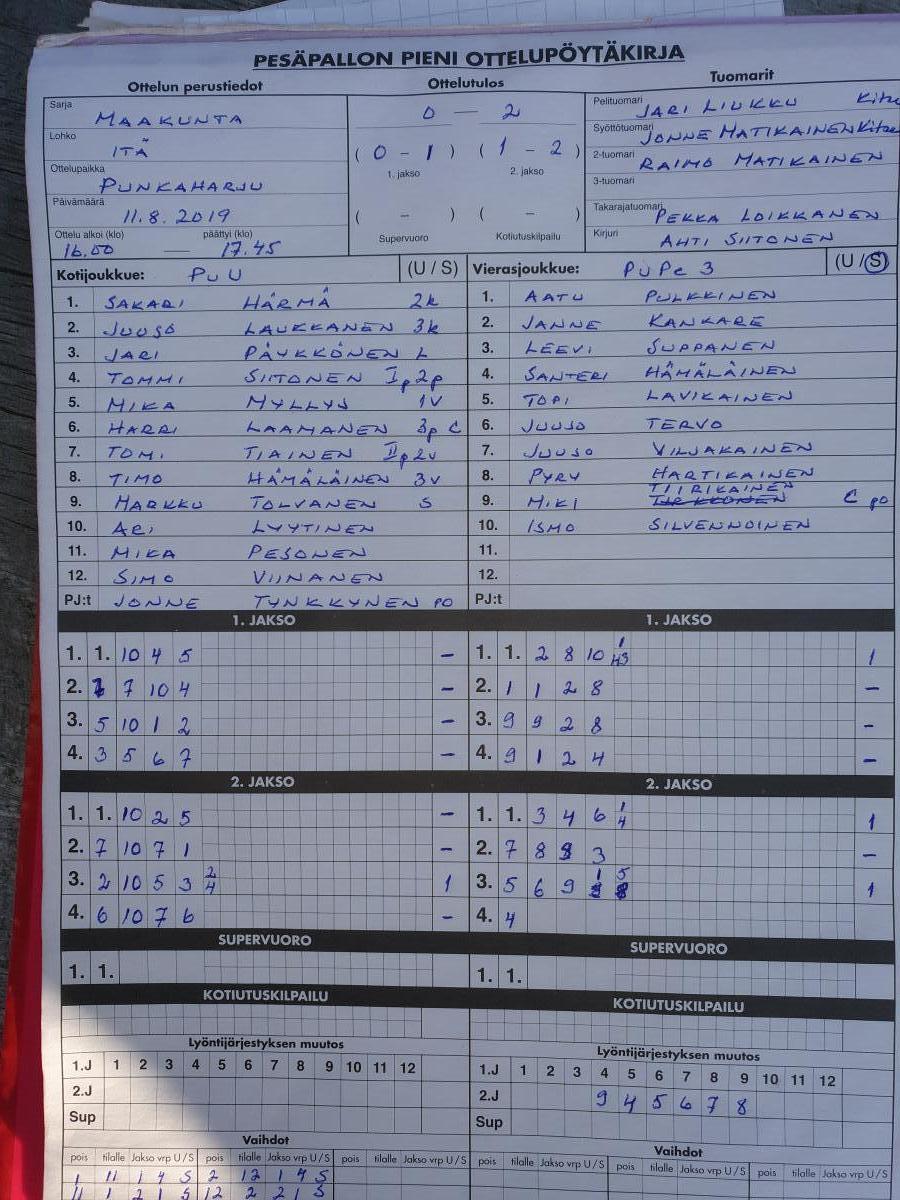 PESÄPALLON PIENI OTTELUPÖYTÄKIRJA
Ottelun perustiedot
Ottelutulos
Tuomarit
Sarja MAAKUNTA
Lohko ITÄ
Ottelupaikka PUNKAHARJU
Päivämäärä 11.8.2019
Ottelu alkoi (klo) päättyi (klo)
16.00 — 17.45
0 — 2
( 0 - 1 ) ( 1 - 2 )
1. jakso 2. jakso
( - ) ( - )
Supervuoro Kotiutuskilpailu
Pelituomari JARI LIUKKU Kitee
Syöttötuomari JONNE MATIKAINEN Kitee
2-tuomari RAIMO MATIKAINEN
3-tuomari
Takarajatuomari PEKKA LOIKKANEN
Kirjuri AHTI SIITONEN
Kotijoukkue: PUU (U / S)
1. SAKARI HÄRMÄ 2k
2. JUUSO LAUKKANEN 3k
3. JARI PÄYKKÖNEN L
4. TOMMI SIITONEN Ip 2p
5. MIKA MYLLYS 1V
6. HARRI LAAMANEN 3p C
7. TOMI TIAINEN IIp 2v
8. TIMO HÄMÄLÄINEN 3v
9. MARKKU TOLVANEN S
10. ARI LYYTINEN
11. MIKA PESONEN
12. SIMO VIINANEN
PJ:t JONNE TYNKKYNEN PO
Vierasjoukkue: PUPE 3 (U / S)
1. AATU PULKKINEN
2. JANNE KANKARE
3. LEEVI SUPPANEN
4. SANTERI HÄMÄLÄINEN
5. TOPI LAVIKAINEN
6. JUUSO TERVO
7. JUUSO VILJAKAINEN
8. PYRY HARTIKAINEN
9. MIKI TIIRIKAINEN C po
10. ISMO SILVENNOINEN
11.
12.
PJ:t
1. JAKSO
1. 1. 10 4 5 –
2. 7 10 4 –
3. 5 10 1 2 –
4. 3 5 6 7 –
1. JAKSO
1. 1. 2 8 10 1
2. 1 1 2 8 –
3. 9 9 2 8 –
4. 9 1 2 4 –
2. JAKSO
1. 1. 10 2 5 –
2. 7 10 7 1 –
3. 2 10 5 3 2/4 1
4. 6 10 7 6 –
2. JAKSO
1. 1. 3 4 6 1/4 1
2. 7 8 3 –
3. 5 6 9 1 5 1
4. 4
SUPERVUORO
1. 1.
SUPERVUORO
1. 1.
KOTIUTUSKILPAILU
KOTIUTUSKILPAILU
Lyöntijärjestyksen muutos
1.J 1 2 3 4 5 6 7 8 9 10 11 12
2.J
Sup
Lyöntijärjestyksen muutos
1.J 1 2 3 4 5 6 7 8 9 10 11 12
2.J 9 4 5 6 7 8
Sup
Vaihdot
pois tilalle Jakso vrp U / S pois tilalle Jakso vrp U / S pois tilalle Jakso vrp U / S
1 11 1 4 S 2 12 1 4 S
11 1 2 1 S 12 2 2 1 S
Vaihdot
pois tilalle Jakso vrp U / S pois tilalle Jakso vrp U / S pois tilalle Jakso vrp U / S